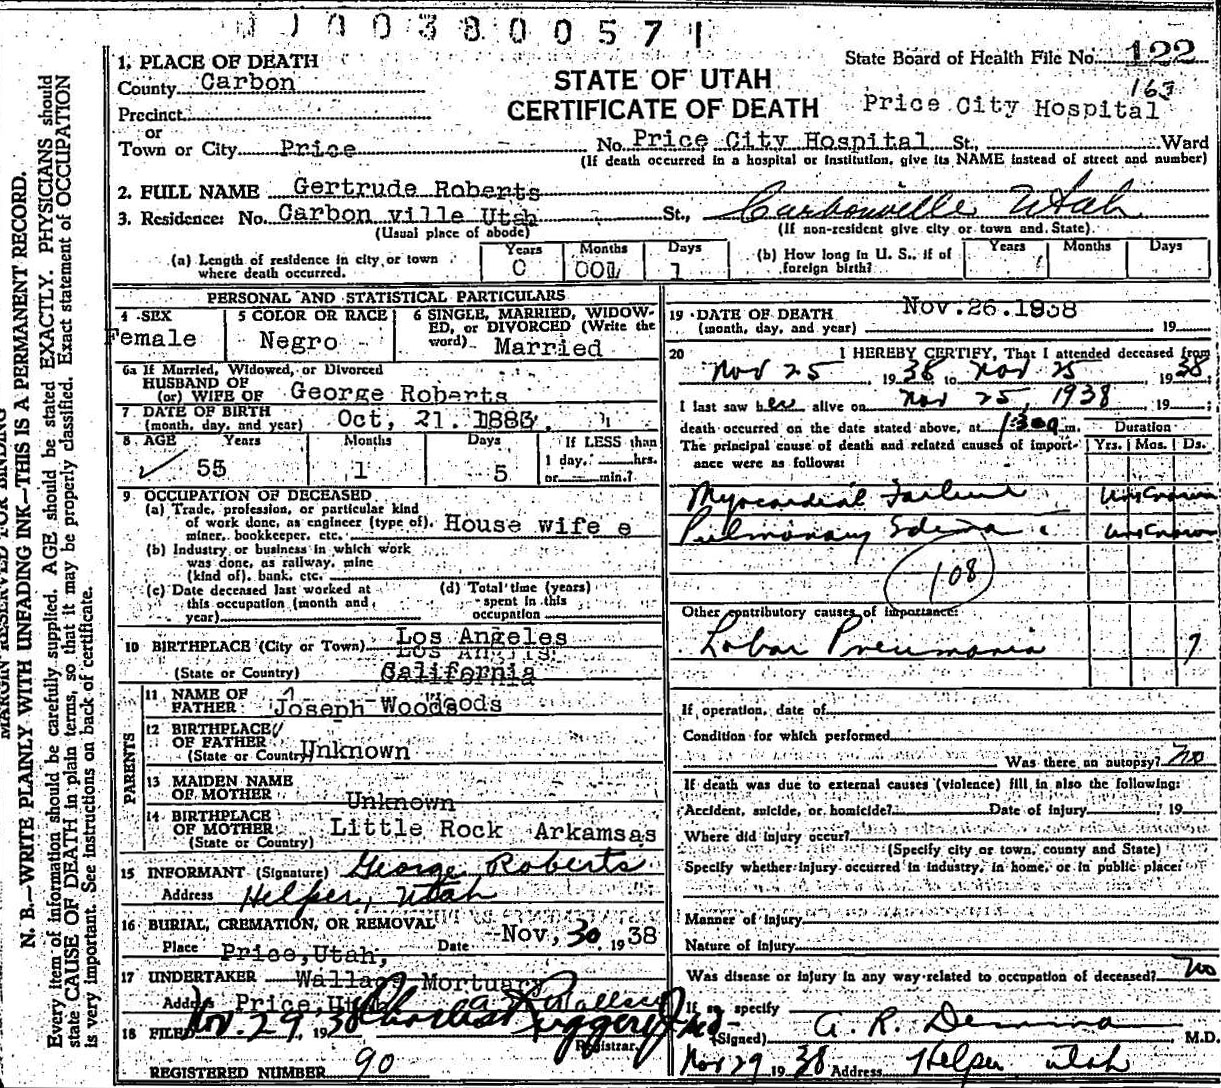 00380057
1. PLACE OF DEATH
County Carbon
Precinct
or
Town or City Price
State Board of Health File No. 122
163
STATE OF UTAH
CERTIFICATE OF DEATH
Price City Hospital
No. Price City Hospital St., Ward
(If death occurred in a hospital or institution, give its NAME instead of street and number)
2. FULL NAME Gertrude Roberts
3. Residence: No. Carbon ville Utah St., Carbonville Utah
(Usual place of abode) (If non-resident give city or town and State)
(a) Length of residence in city or town where death occurred. Years 0 Months 001 Days 1
(b) How long in U. S., if of foreign birth? Years Months Days
PERSONAL AND STATISTICAL PARTICULARS
4 SEX Female
5 COLOR OR RACE Negro
6 SINGLE, MARRIED, WIDOWED, or DIVORCED (Write the word) Married
6a If Married, Widowed, or Divorced
HUSBAND OF
(or) WIFE OF George Roberts
7 DATE OF BIRTH
(month, day, and year) Oct, 21. 1883.
8 AGE Years 55 Months 1 Days 5 If LESS than 1 day, hrs. or min.?
9 OCCUPATION OF DECEASED
(a) Trade, profession, or particular kind of work done, as engineer (type of), miner, bookkeeper, etc. House wife e
(b) Industry or business in which work was done, as railway, mine (kind of), bank, etc.
(c) Date deceased last worked at this occupation (month and year)
(d) Total time (years) spent in this occupation
10 BIRTHPLACE (City or Town) Los Angeles
(State or Country) California
PARENTS
11 NAME OF FATHER Joseph Woods
12 BIRTHPLACE OF FATHER
(State or Country) Unknown
13 MAIDEN NAME OF MOTHER Unknown
14 BIRTHPLACE OF MOTHER
(State or Country) Little Rock Arkamsas
15 INFORMANT (Signature) George Roberts
Address Helper, Utah
16 BURIAL, CREMATION, OR REMOVAL
Place Price, Utah, Date Nov, 30, 1938
17 UNDERTAKER Wallace Mortuary
Address Price, Utah
18 FILED Nov. 29, 1938
Registrar.
REGISTERED NUMBER 90
19 DATE OF DEATH
(month, day, and year) Nov. 26. 1938 19
20 I HEREBY CERTIFY, That I attended deceased from
Nov 25 1938 to Nov 25 1938
I last saw her alive on Nov 25, 1938 19 ;
death occurred on the date stated above, at 1:30 a m.
Duration
The principal cause of death and related causes of importance were as follows:
Yrs. Mos. Ds.
Myocardial Failure Unknown
Pulmonary Edema Unknown
108
Other contributory causes of importance:
Lobar Pneumonia 7
If operation, date of
Condition for which performed
Was there an autopsy? No
If death was due to external causes (violence) fill in also the following:
Accident, suicide, or homicide? Date of injury , 19
Where did injury occur?
(Specify city or town, county and State)
Specify whether injury occurred in industry, in home, or in public place:
Manner of injury
Nature of injury
Was disease or injury in any way related to occupation of deceased? No
If so specify
(Signed) A. R. M.D.
Nov 29 1938 Address Helper Utah
MARGIN RESERVED FOR BINDING
N. B.—WRITE PLAINLY WITH UNFADING INK—THIS IS A PERMANENT RECORD.
Every item of information should be carefully supplied. AGE should be stated EXACTLY. PHYSICIANS should
state CAUSE OF DEATH in plain terms, so that it may be properly classified. Exact statement of OCCUPATION
is very important. See instructions on back of certificate.